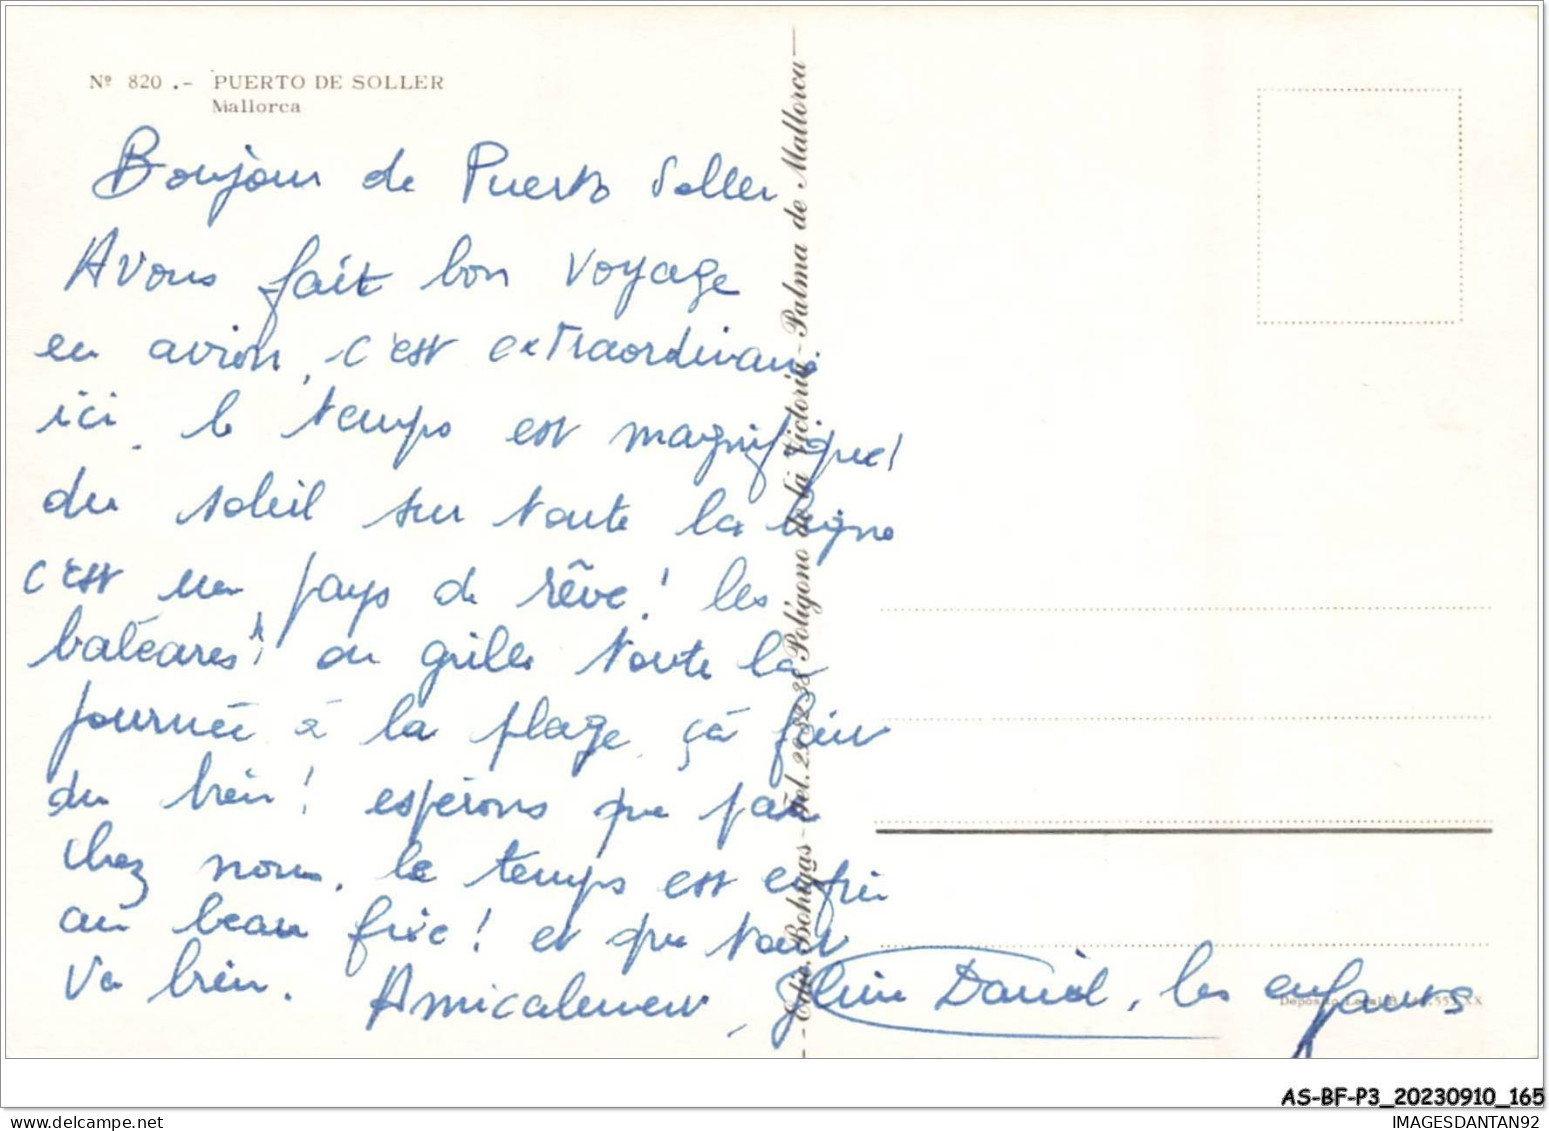 Nº 820 .- PUERTO DE SOLLER
Mallorca
Bonjour de Puerto Soller
Avons fait bon voyage
en avion, c'est extraordinaire
ici, le temps est magnifique!
du soleil sur toute la ligne
c'est un pays de rêve! les
baléares! on grille toute la
journée à la plage, çà fait
du bien! espérons que par
chez nous, le temps est enfin
au beau fixe! et que tout
va bien. Amicalement, Daniel, les enfants
Edic. Bohigas - Tel. 29 82 38 Polígono de la Victoria - Palma de Mallorca
Depósito Legal B
AS-BF-P3_20230910_165
IMAGESDANTAN92